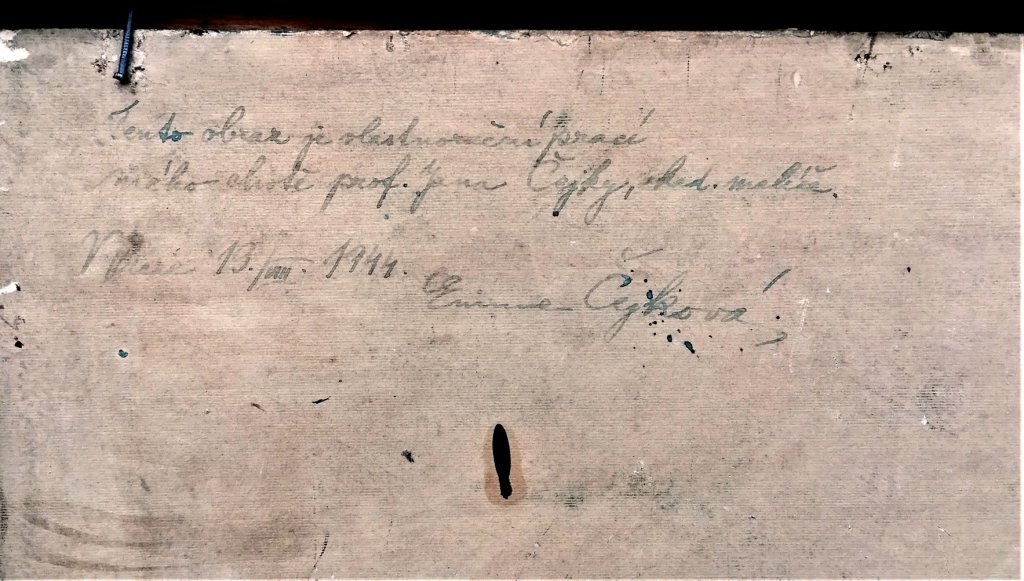 Tento obraz je vlastnoruční prací
mého chotě prof. Jana Čejky, akad. malíře.
13./VIII. 1944.
Emma Čejková,